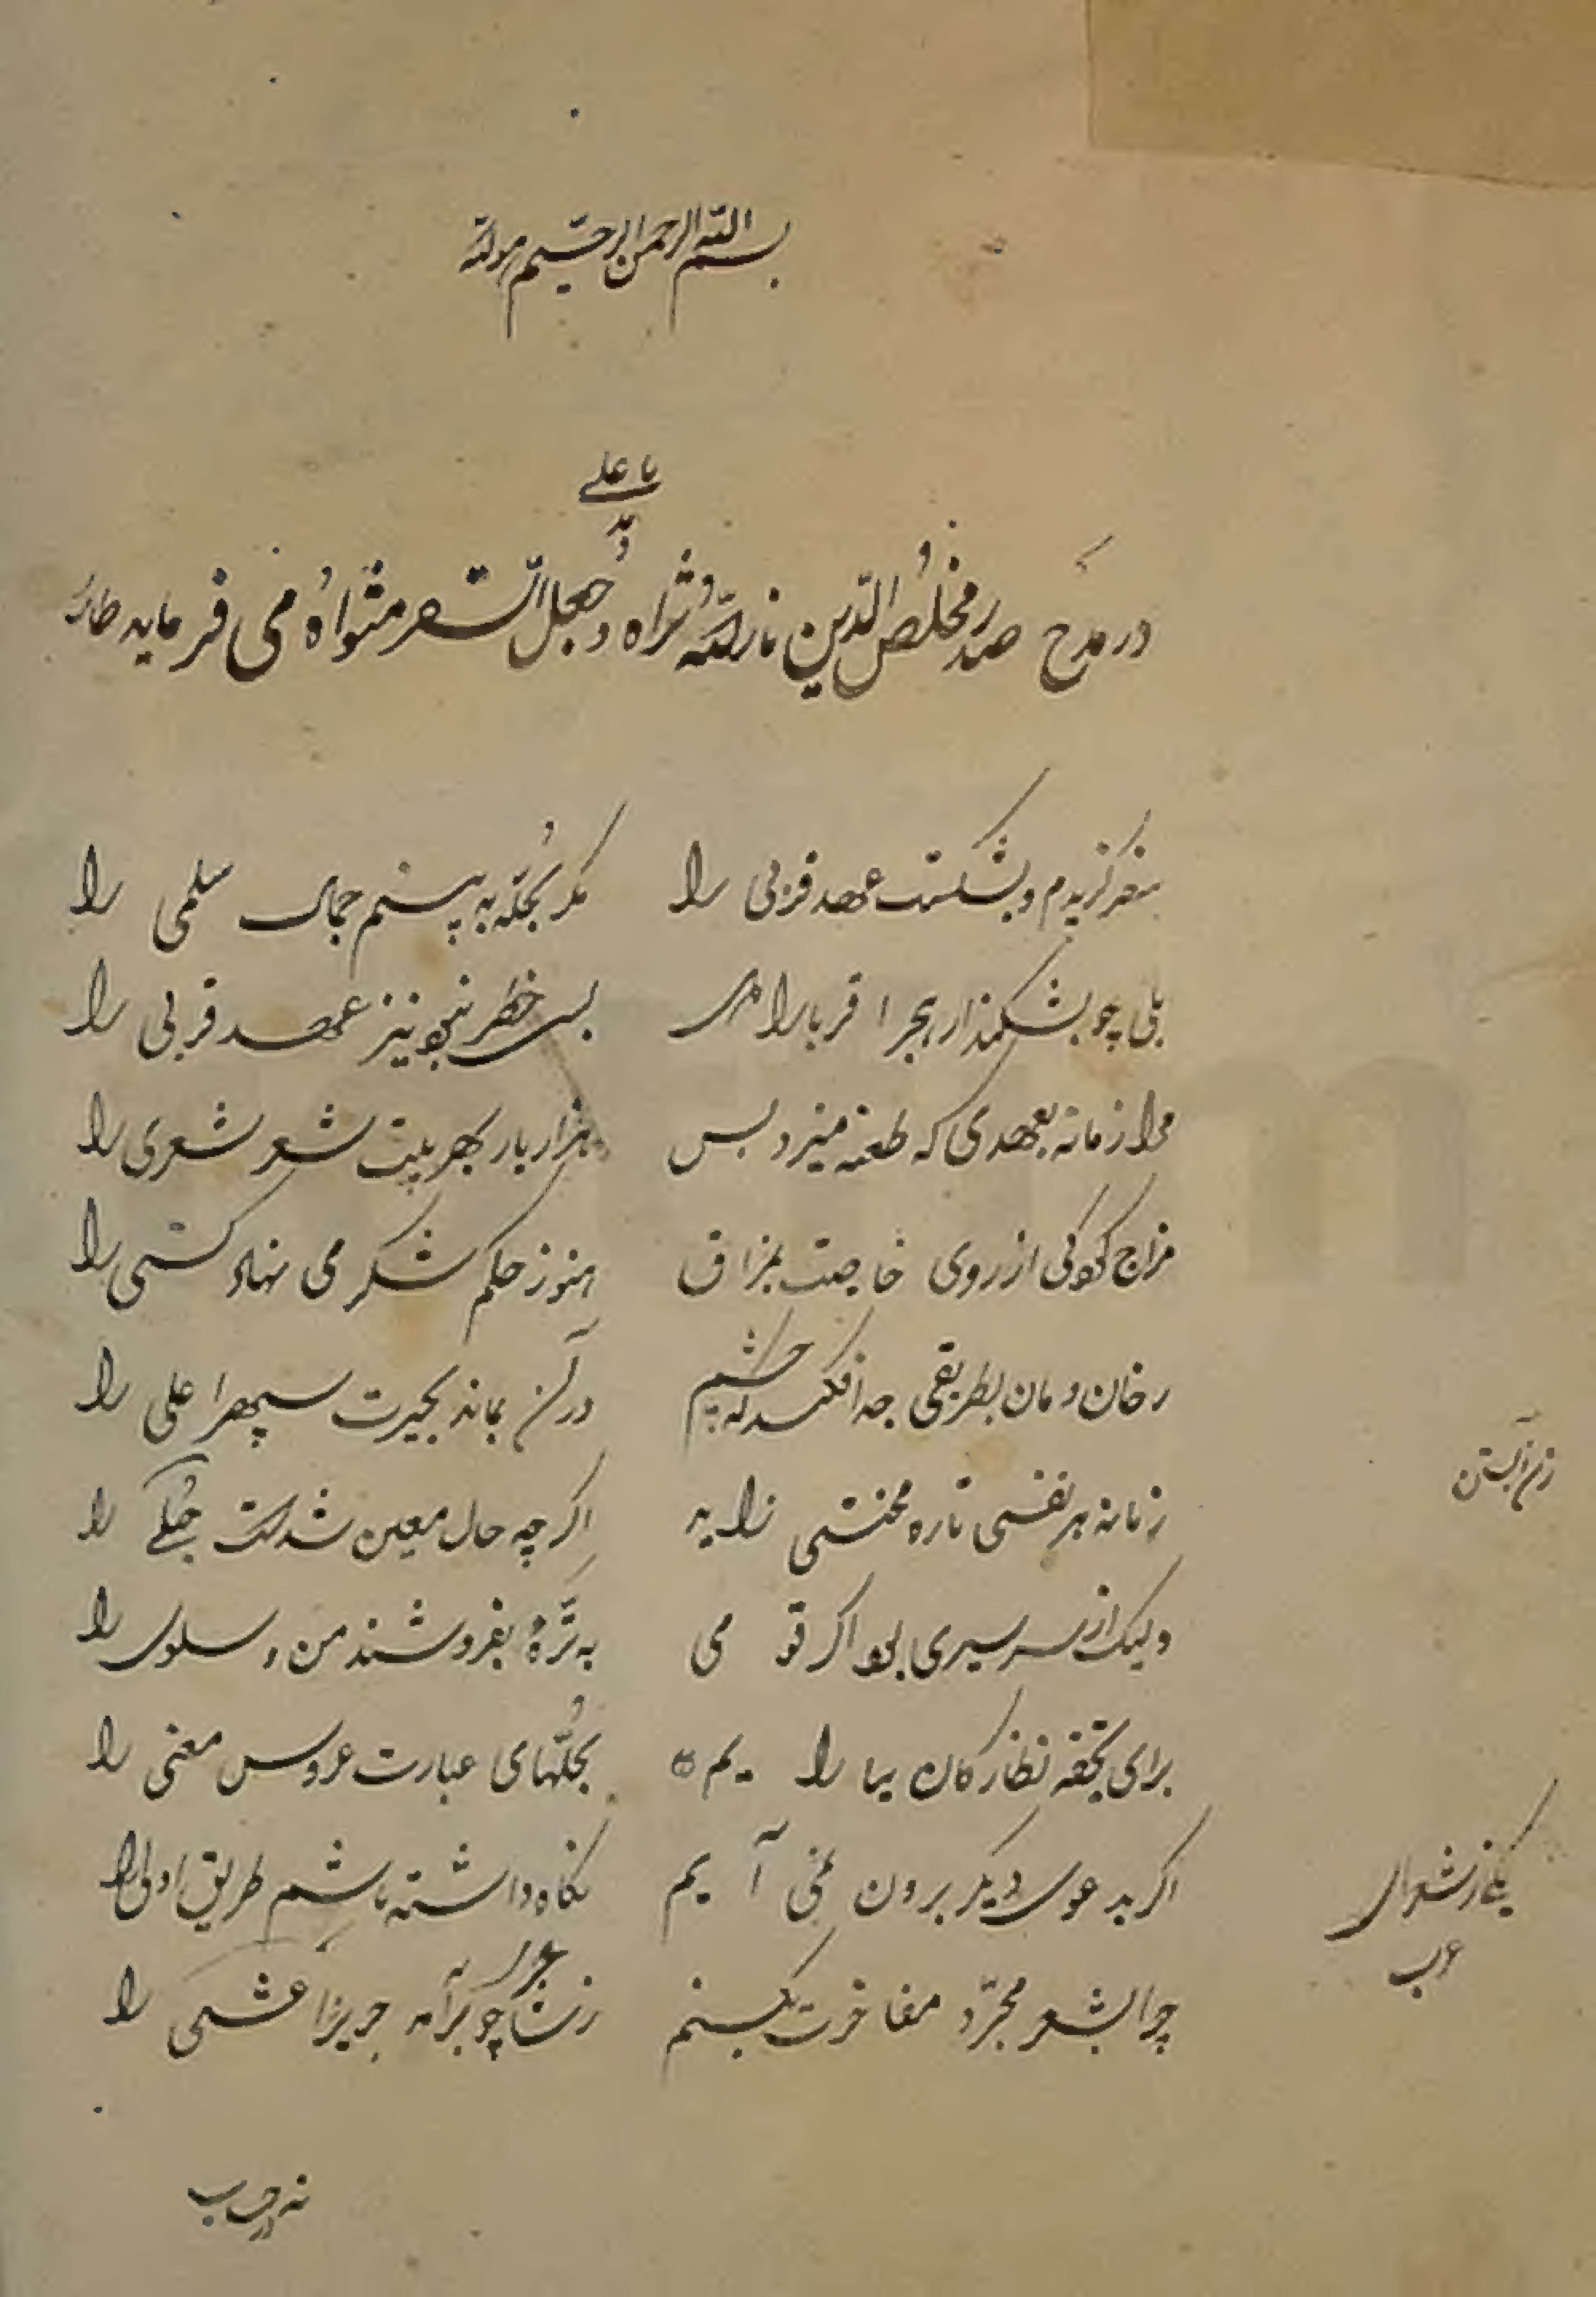 بسم الله الرحمن الرحیم
یا علی
در مدح صدر مخلص الدین نارالله ثراه و جعل مثواه می فرماید
سفر کزیدم و بشکست عهد قربی را مکر بحله به بینم جمال سلمی را
بلی چو بشکند از هجر اقربا را بسی خطر نبود نیز عهد قربی را
مرا زمانه بعهدی که طعنه میزد بس هزار بار بهر بیت شعر شعری را
مزاج کودکی از روی خاصیت بمزاق هنوز حکم شکر می نهاد کسنی را
رخان و مان بطریقی جدا فکند که چشم در آن بماند بحیرت سپهر اعلی را
زمانه هر نفسی تازه محنتی زاید اکر چه حال معین شدست حبلی را
ولیک از سر سیری بود اکر قومی به تره بفروشند من و سلوی را
برای تحفه نظارکان بیارایم بحلتهای عبارت عروس معنی را
اکر بدعوی دیکر برون نمی آیم نکاه داشته باشم طریق اولی را
چرا بشعر مجرد مفاخرت نکنم ز شاعری چو برآمد جریر اعشی را
زن آبستن
یکی از شعرای
عرب
نه در حرب